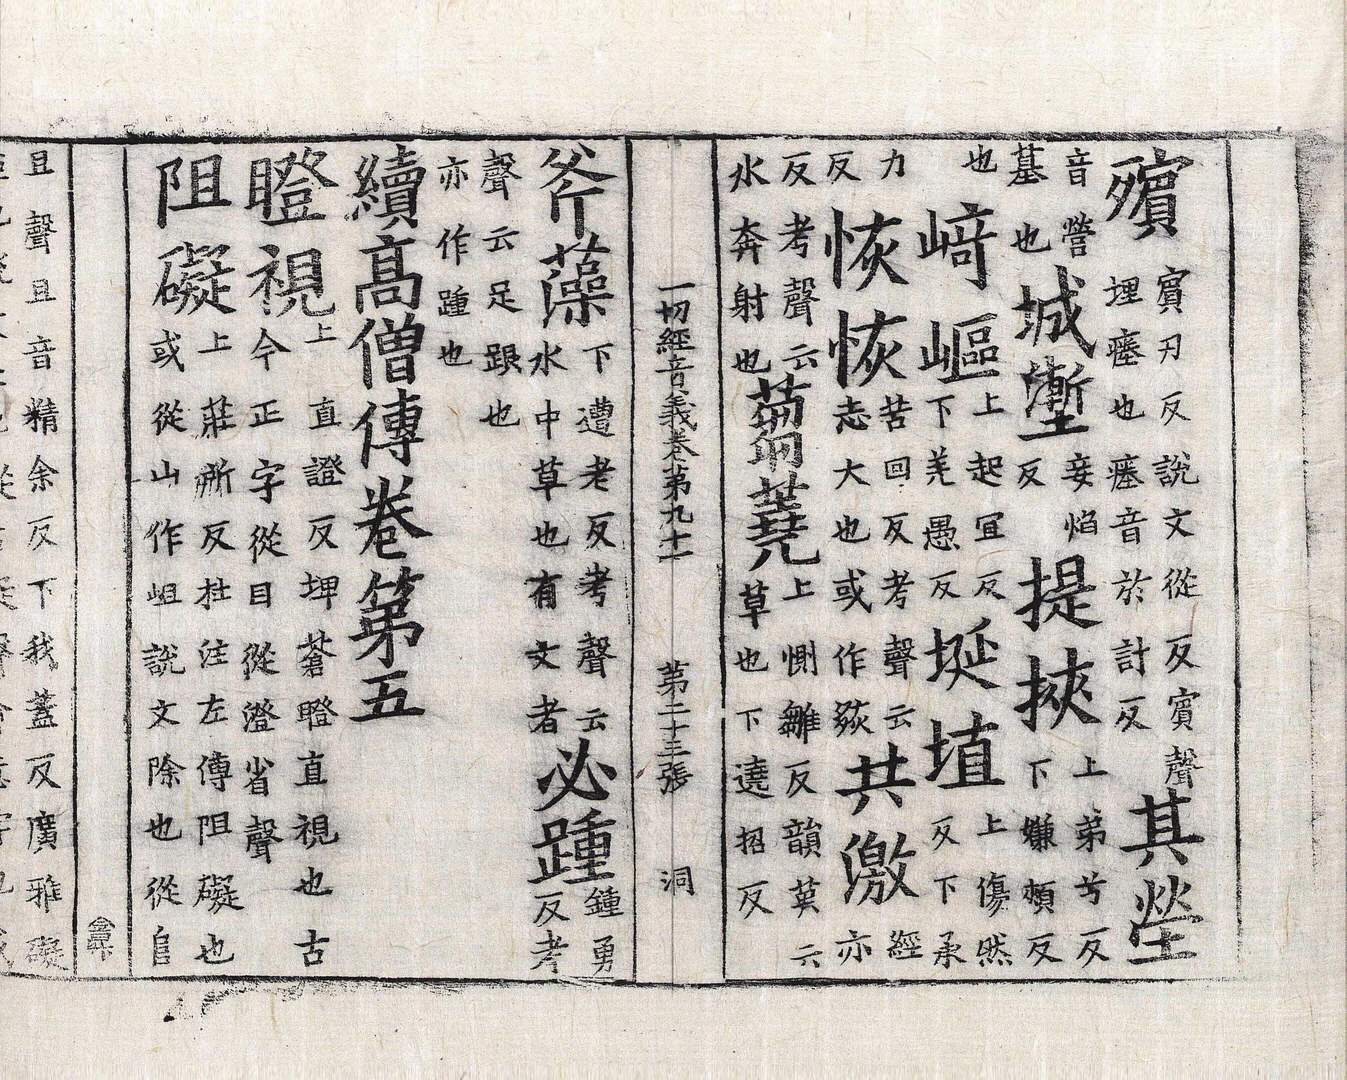 殯賓刃反說文從反賓聲埋瘞也瘞音於計反其塋
音營墓也城塹妾焰反提挾上弟兮反下嫌頰反
也崎嶇上起冝反下羌愚反埏埴上傷然反下承
力反恢恢苦回反考聲云志大也或作㷇共激經亦
反考聲云水奔射也蒭蕘上惻雛反韻英云草也下遶招反
一切經音義卷第九十一 第二十三張 洞
斧藻下遭老反考聲云水中草也有文者必踵鍾勇反考
聲云足跟也亦作踵也
續高僧傳卷第五
瞪視上直證反埤蒼瞪直視也古今正字從目從澄省聲
阻礙上莊所反杜注左傳阻礙也或從山作岨說文除也從𨸏
且聲且音精余反下我蓋反廣雅礙